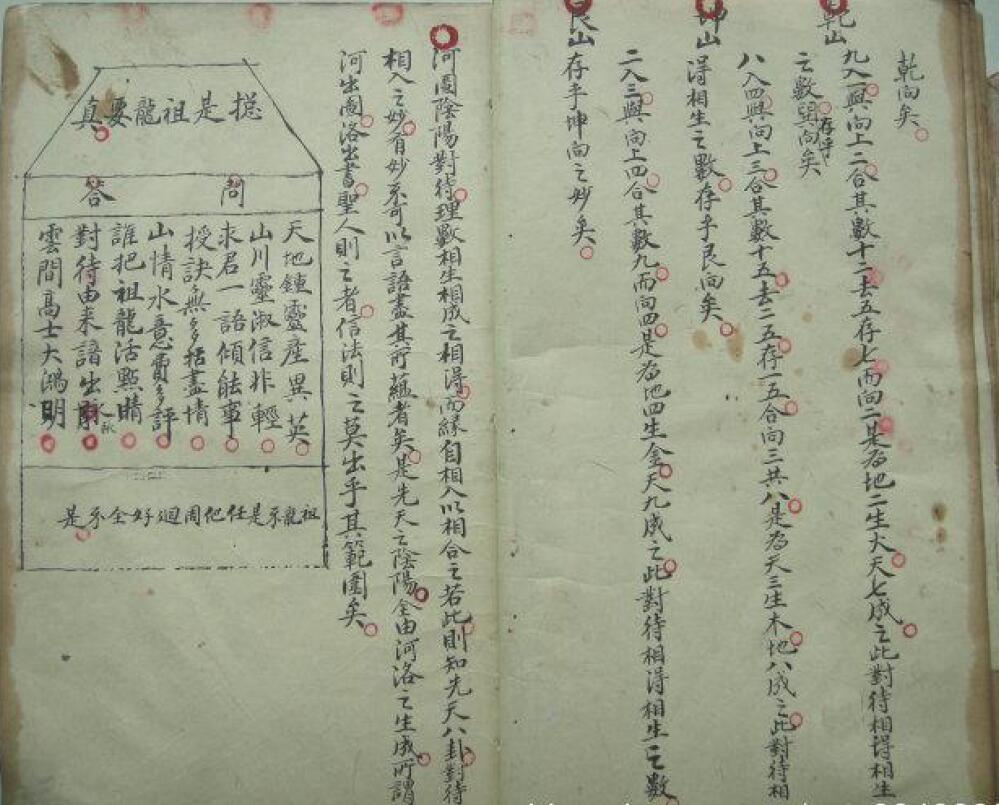 乾向矣
乾山
九入一與向上二合其數十二去五存七而向二是為地二生火天七成之此對待相得相生
之數存乎巽向矣
坤山
八入四與向上三合其數十五去二五存一五合向三共八是為天三生木地八成之此對待相
得相生之數存乎艮向矣
艮山
二入三與向上四合其數九而向四是為地四生金天九成之此對待相得相生之數
存乎坤向之妙矣
河圖陰陽對待理數相生相成之相得而緣自相入以相合之若此則知先天八卦對待
相入之妙有妙不可以言語盡其所蘊者矣是先天之陰陽全由河洛之生成所謂
河出圖洛出書聖人則之者信法則之莫出乎其範圍矣
摠是祖龍要真
問
答
天地鍾靈産異英
山川靈淑信非輕
求君一語傾能事
授訣無多括盡情
山情水意費多評
誰把祖龍活點睛
對待由来譜出
雲間高士大鴻明
祖龍不是任他周迴好全不是